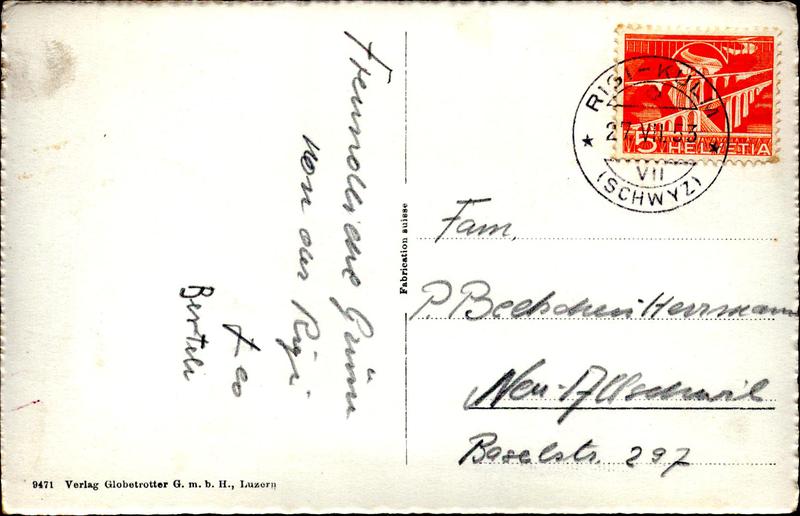 Freundliche Grüsse
von der Rigi
Leo
Berteli
Fabrication suisse
RIGI-KULM
27.VII.53
VII
(SCHWYZ)
5 HELVETIA
Fam.
P. Herrmann
Neu-Allschwil
Baselstr. 297
9471 Verlag Globetrotter G. m. b. H., Luzern